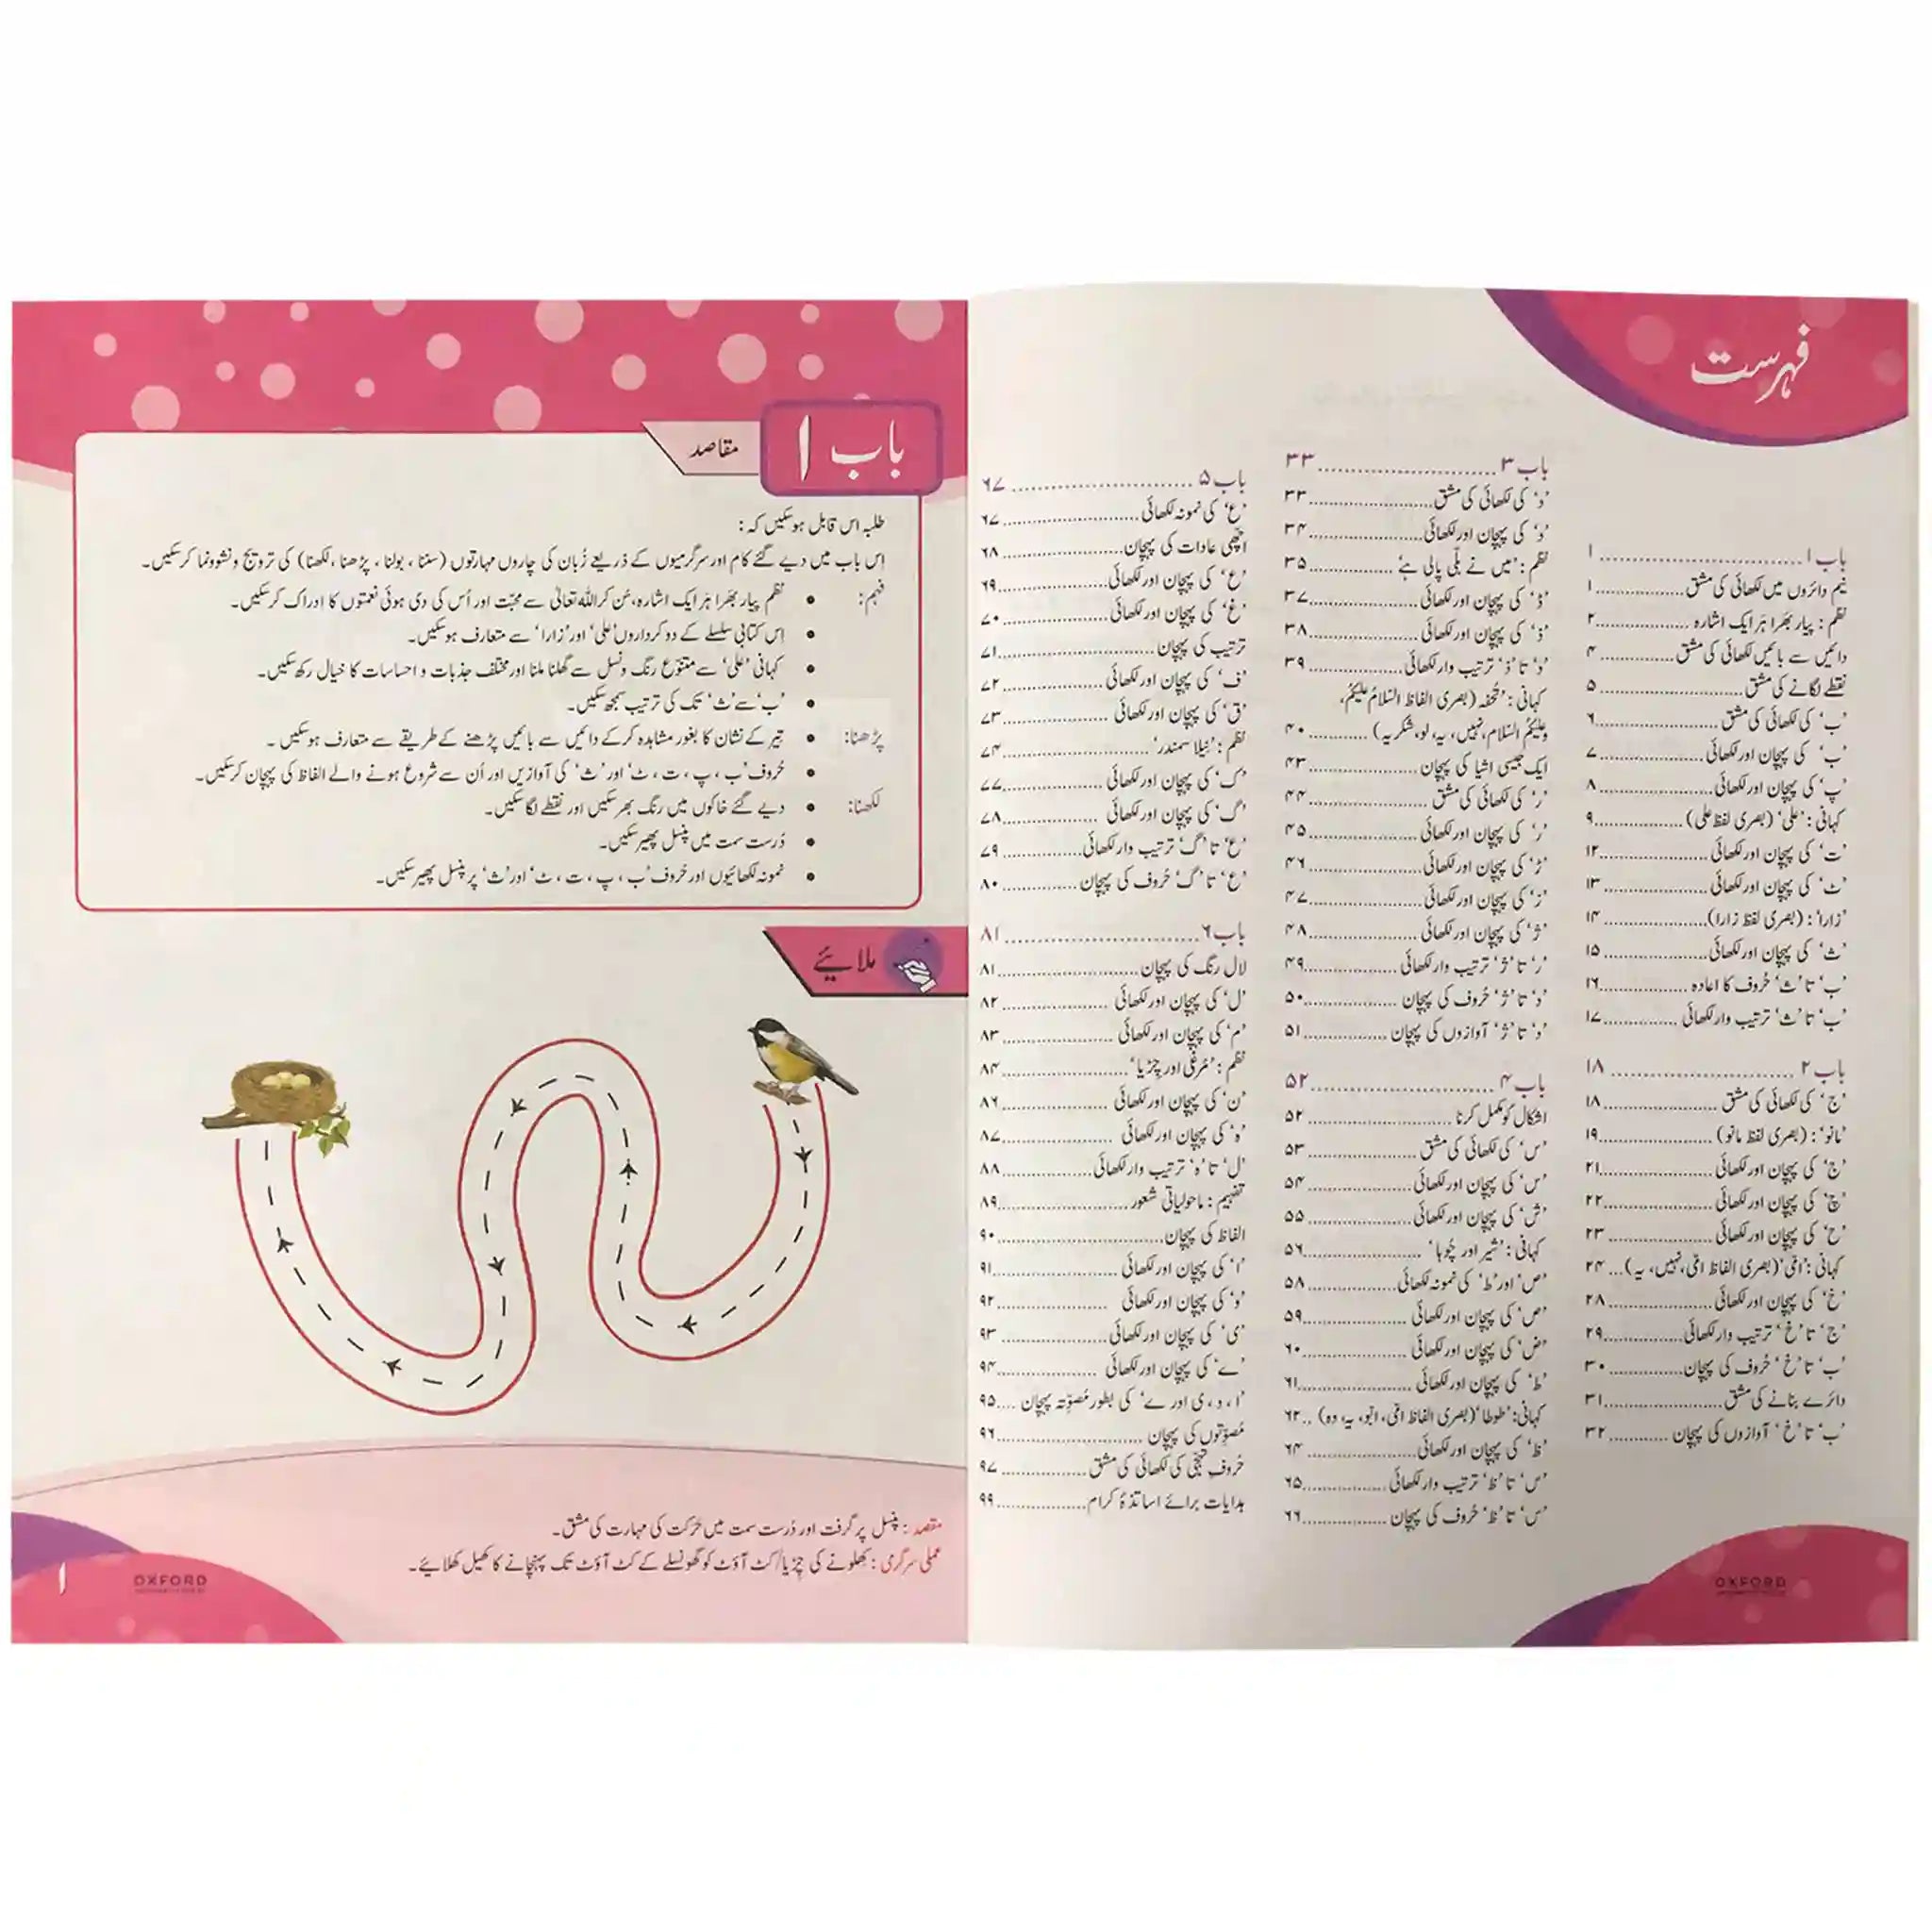 فہرست
باب ۱ ........................ ۱
نیم دائروں میں لکھائی کی مشق ............ ۱
نظم : پیار بھرا ہر ایک اشارہ ............ ۲
دائیں سے بائیں لکھائی کی مشق ............ ۴
نقطے لگانے کی مشق ............ ۵
’ب‘ کی لکھائی کی مشق ............ ۶
’ب‘ کی پہچان اور لکھائی ............ ۷
’پ‘ کی پہچان اور لکھائی ............ ۸
کہانی : ’علی‘ (بصری لفظ علی) ............ ۹
’ت‘ کی پہچان اور لکھائی ............ ۱۲
’ٹ‘ کی پہچان اور لکھائی ............ ۱۳
’زارا‘ : (بصری لفظ زارا) ............ ۱۴
’ث‘ کی پہچان اور لکھائی ............ ۱۵
’ب‘ تا ’ث‘ حُروف کا اعادہ ............ ۱۶
’ب‘ تا ’ث‘ ترتیب وار لکھائی ............ ۱۷
باب ۲ ........................ ۱۸
’ج‘ کی لکھائی کی مشق ............ ۱۸
’مانو‘ : (بصری لفظ مانو) ............ ۱۹
’ج‘ کی پہچان اور لکھائی ............ ۲۱
’چ‘ کی پہچان اور لکھائی ............ ۲۲
’ح‘ کی پہچان اور لکھائی ............ ۲۳
کہانی : ’امّی‘ (بصری الفاظ امّی، نہیں، یہ) ... ۲۴
’خ‘ کی پہچان اور لکھائی ............ ۲۸
’ج‘ تا ’خ‘ ترتیب وار لکھائی ............ ۲۹
’ب‘ تا ’خ‘ حُروف کی پہچان ............ ۳۰
دائرے بنانے کی مشق ............ ۳۱
’ب‘ تا ’خ‘ آوازوں کی پہچان ............ ۳۲
باب ۳ ........................ ۳۳
’د‘ کی لکھائی کی مشق ............ ۳۳
’د‘ کی پہچان اور لکھائی ............ ۳۴
نظم : ’میں نے بلّی پالی ہے‘ ............ ۳۵
’ڈ‘ کی پہچان اور لکھائی ............ ۳۷
’ذ‘ کی پہچان اور لکھائی ............ ۳۸
’د‘ تا ’ذ‘ ترتیب وار لکھائی ............ ۳۹
کہانی : ’تحفہ (بصری الفاظ السّلامُ علیکُم،
وعلیکُم السّلام، نہیں، یہ، لو، شکریہ) ............ ۴۰
ایک جیسی اشیا کی پہچان ............ ۴۳
’ر‘ کی لکھائی کی مشق ............ ۴۴
’ر‘ کی پہچان اور لکھائی ............ ۴۵
’ڑ‘ کی پہچان اور لکھائی ............ ۴۶
’ز‘ کی پہچان اور لکھائی ............ ۴۷
’ژ‘ کی پہچان اور لکھائی ............ ۴۸
’ر‘ تا ’ژ‘ ترتیب وار لکھائی ............ ۴۹
’د‘ تا ’ژ‘ حُروف کی پہچان ............ ۵۰
’د‘ تا ’ژ‘ آوازوں کی پہچان ............ ۵۱
باب ۴ ........................ ۵۲
اشکال کو مکمل کرنا ............ ۵۲
’س‘ کی لکھائی کی مشق ............ ۵۳
’س‘ کی پہچان اور لکھائی ............ ۵۴
’ش‘ کی پہچان اور لکھائی ............ ۵۵
کہانی : ’شیر اور چُوہا‘ ............ ۵۶
’ص‘ اور ’ط‘ کی نمونہ لکھائی ............ ۵۸
’ص‘ کی پہچان اور لکھائی ............ ۵۹
’ض‘ کی پہچان اور لکھائی ............ ۶۰
’ط‘ کی پہچان اور لکھائی ............ ۶۱
کہانی : ’طوطا‘ (بصری الفاظ امّی، ابّو، یہ، وہ) .. ۶۲
’ظ‘ کی پہچان اور لکھائی ............ ۶۴
’س‘ تا ’ظ‘ ترتیب وار لکھائی ............ ۶۵
’س‘ تا ’ظ‘ حُروف کی پہچان ............ ۶۶
باب ۵ ........................ ۶۷
’ع‘ کی نمونہ لکھائی ............ ۶۷
اچھی عادات کی پہچان ............ ۶۸
’ع‘ کی پہچان اور لکھائی ............ ۶۹
’غ‘ کی پہچان اور لکھائی ............ ۷۰
ترتیب کی پہچان ............ ۷۱
’ف‘ کی پہچان اور لکھائی ............ ۷۲
’ق‘ کی پہچان اور لکھائی ............ ۷۳
نظم : ’نیلا سمندر‘ ............ ۷۴
’ک‘ کی پہچان اور لکھائی ............ ۷۷
’گ‘ کی پہچان اور لکھائی ............ ۷۸
’ع‘ تا ’گ‘ ترتیب وار لکھائی ............ ۷۹
’ع‘ تا ’گ‘ حُروف کی پہچان ............ ۸۰
باب ۶ ........................ ۸۱
لال رنگ کی پہچان ............ ۸۱
’ل‘ کی پہچان اور لکھائی ............ ۸۲
’م‘ کی پہچان اور لکھائی ............ ۸۳
نظم : ’مُرغی اور چڑیا‘ ............ ۸۴
’ن‘ کی پہچان اور لکھائی ............ ۸۶
’ہ‘ کی پہچان اور لکھائی ............ ۸۷
’ل‘ تا ’ہ‘ ترتیب وار لکھائی ............ ۸۸
تفہیم : ماحولیاتی شعور ............ ۸۹
الفاظ کی پہچان ............ ۹۰
’ا‘ کی پہچان اور لکھائی ............ ۹۱
’و‘ کی پہچان اور لکھائی ............ ۹۲
’ی‘ کی پہچان اور لکھائی ............ ۹۳
’ے‘ کی پہچان اور لکھائی ............ ۹۴
’ا، و، ی اور ے‘ کی بطور مُصوّتہ پہچان .... ۹۵
مُصوّتوں کی پہچان ............ ۹۶
حُروفِ تہجّی کی لکھائی کی مشق ............ ۹۷
ہدایات برائے اساتذۂ کرام ............ ۹۹
OXFORD
باب ۱
مقاصد
طلبہ اس قابل ہو سکیں کہ :
اِس باب میں دیے گئے کام اور سرگرمیوں کے ذریعے زُبان کی چاروں مہارتوں (سننا ، بولنا ، پڑھنا ، لکھنا) کی ترویج و نشوونما کر سکیں۔
فہم: • نظم پیار بھرا ہر ایک اشارہ، سُن کر اللہ تعالیٰ سے محبّت اور اُس کی دی ہوئی نعمتوں کا ادراک کر سکیں۔
• اِس کتابی سلسلے کے دو کرداروں ’علی‘ اور ’زارا‘ سے متعارف ہو سکیں۔
• کہانی ’علی‘ سے متنوّع رنگ و نسل سے گھلنا ملنا اور مختلف جذبات و احساسات کا خیال رکھ سکیں۔
• ’ب‘ سے ’ث‘ تک کی ترتیب سمجھ سکیں۔
پڑھنا: • تیر کے نشان کا بغور مشاہدہ کرکے دائیں سے بائیں پڑھنے کے طریقے سے متعارف ہو سکیں ۔
• حُروف ’ب ، پ ، ت ، ٹ‘ اور ’ث‘ کی آوازیں اور اُن سے شروع ہونے والے الفاظ کی پہچان کر سکیں۔
لکھنا: • دیے گئے خاکوں میں رنگ بھر سکیں اور نقطے لگا سکیں۔
• دُرست سمت میں پنسل پھیر سکیں۔
• نمونہ لکھائیوں اور حُروف ’ب ، پ ، ت ، ٹ‘ اور ’ث‘ پر پنسل پھیر سکیں۔
ملائیے
مقصد : پنسل پر گرفت اور دُرست سمت میں حَرکت کی مہارت کی مشق۔
عملی سرگرمی : کھلونے کی چڑیا/کٹ آؤٹ کو گھونسلے کے کٹ آؤٹ تک پہنچانے کا کھیل کھلائیے۔
OXFORD
۱